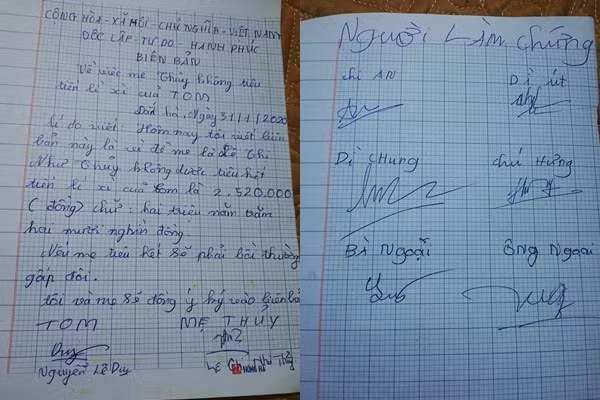 CỘNG HÒA - XÃ HỘI - CHỦ NGHĨA - VIỆT NAM
ĐỘC LẬP - TỰ DO - HẠNH PHÚC
BIÊN BẢN
Về việc mẹ Thủy không tiêu
tiền lì xì của TOM
Đăk hà, Ngày 31/1/2020
Lí do viết: Hôm nay tôi viết biên
bản này là vì để mẹ là Lê Thị
Như Thủy không được tiêu hết
tiền lì xì của tôm là 2.520.000
(đồng) chữ: hai triệu năm trăm
hai mươi nghìn đồng.
Nếu mẹ tiêu hết sẽ phải bồi thường
gấp đôi.
tôi và mẹ sẽ đồng ý ký vào biên bản
TOM MẸ THỦY
Duy
Nguyễn Lê Duy Lê Thị Như Thủy
Người Làm chứng
chị AN Dì út
Dì CHUNG chú Hưng
Bà NGOẠI ÔNG NGOẠI